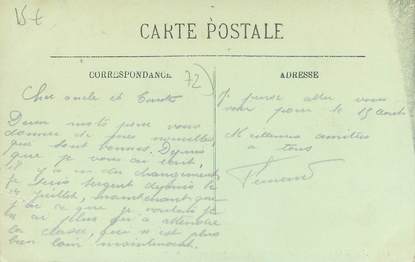 15 €
CARTE POSTALE
CORRESPONDANCE
72
ADRESSE
Cher oncle et Tante
Deux mots pour vous
donner de mes nouvelles
que sont bonnes. Depuis
que je vous ai écrit,
il y a eu du changement
je suis sergent depuis le
14 juillet, maintenant que
j'ai ce que je voulais je
n'ai plus qu'à attendre
la classe, qui n'est plus
bien loin maintenant.
Je pense aller vous
voir pour le 15 août
Meilleures amitiés
à tous
Fernand